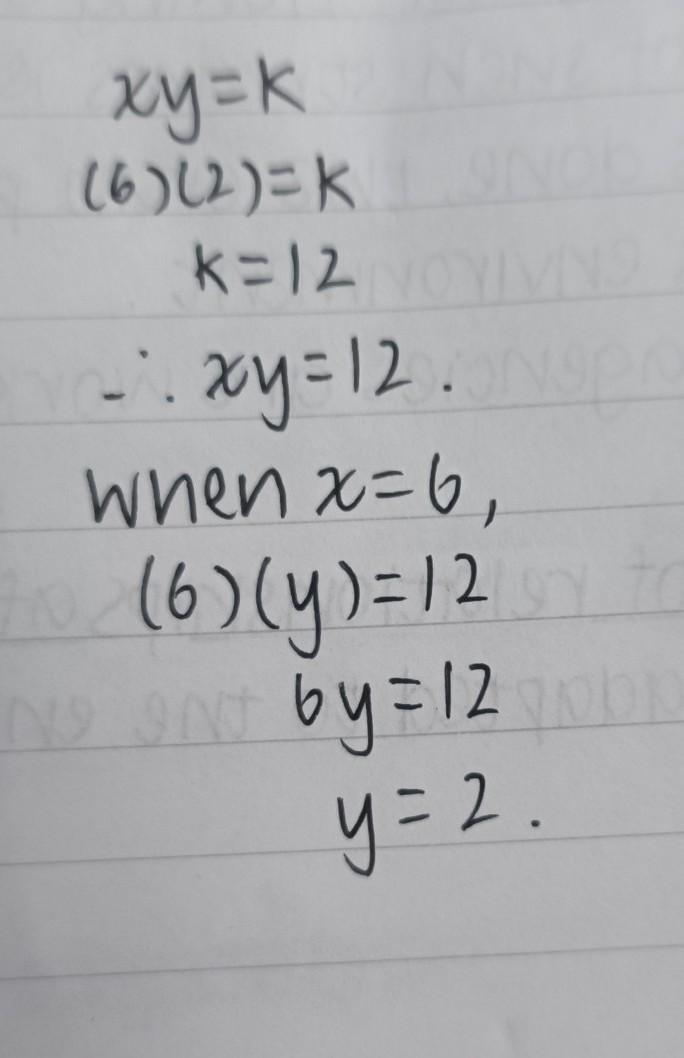 xy=k
(6)(2)=k
k=12
∴ xy=12.
when x=6,
(6)(y)=12
6y=12
y=2.